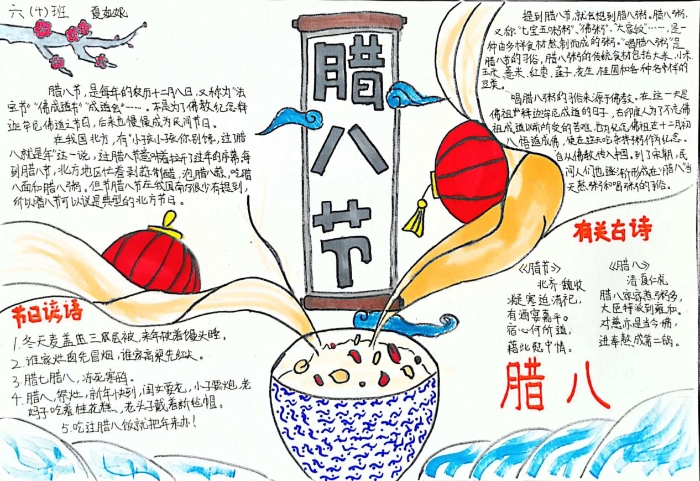 六（十）班 夏如妮
腊八节，是每年的农历十二月八日，又称为"法
宝节""佛成道节""成道会"……。本是为了佛教纪念释
迦牟尼佛成道之节日，后来也慢慢成为民间节日。
在我国北方，有"小孩小孩你别馋，过了腊
八就是年"这一说，过腊八节意味着拉开了过年的序幕，每
到腊八节，北方地区忙着剥蒜制醋，泡腊八蒜，吃腊
八面和腊八粥，但节腊八节在我国南方很少有提到，
所以腊八节可以说是典型的北方节日。
腊
八
节
提到腊八节，就会想到腊八粥。腊八粥，
又称"七宝五味粥""佛粥""大家饭"……，是一
种由多样食材熬制而成的粥。"喝腊八粥"是
腊八节的习俗，腊八粥的传统食材包括大米、小米
玉米、薏米、红枣、莲子、花生、桂圆和各种各样的
豆类。
喝腊八粥的习俗来源于佛教。在这一天是
佛祖释迦牟尼成道的日子，古印度人为了不忘佛
祖成道以前所受的苦难，也为纪念佛祖在十二月初
八悟道成佛，便在这天吃杂拌粥作为纪念。
自从佛教传入中国，到了宋朝，民
间人们也逐渐形成在"腊八"当
天熬粥和喝粥的习俗。
有关古诗
《腊节》
北齐·魏收
凝寒迫清祀，
有酒宴嘉平。
宿心何所道，
藉此慰中情。
《腊八》
清·夏仁虎
腊八家家煮粥多，
大臣特派到雍和。
对慈亦是当今佛，
进奉熬成第二锅。
腊八
节日谚语
1.冬天麦盖三层被，来年枕着馒头睡。
2.谁家灶囱先冒烟，谁家高粱先红尖。
3.腊七腊八，冻死寒鸦。
4.腊八，祭灶，新年快到，闺女要花，小子要炮，老
妈子吃着桂花糕，老头子戴着新毡帽。
5.吃过腊八饭就把年来办！